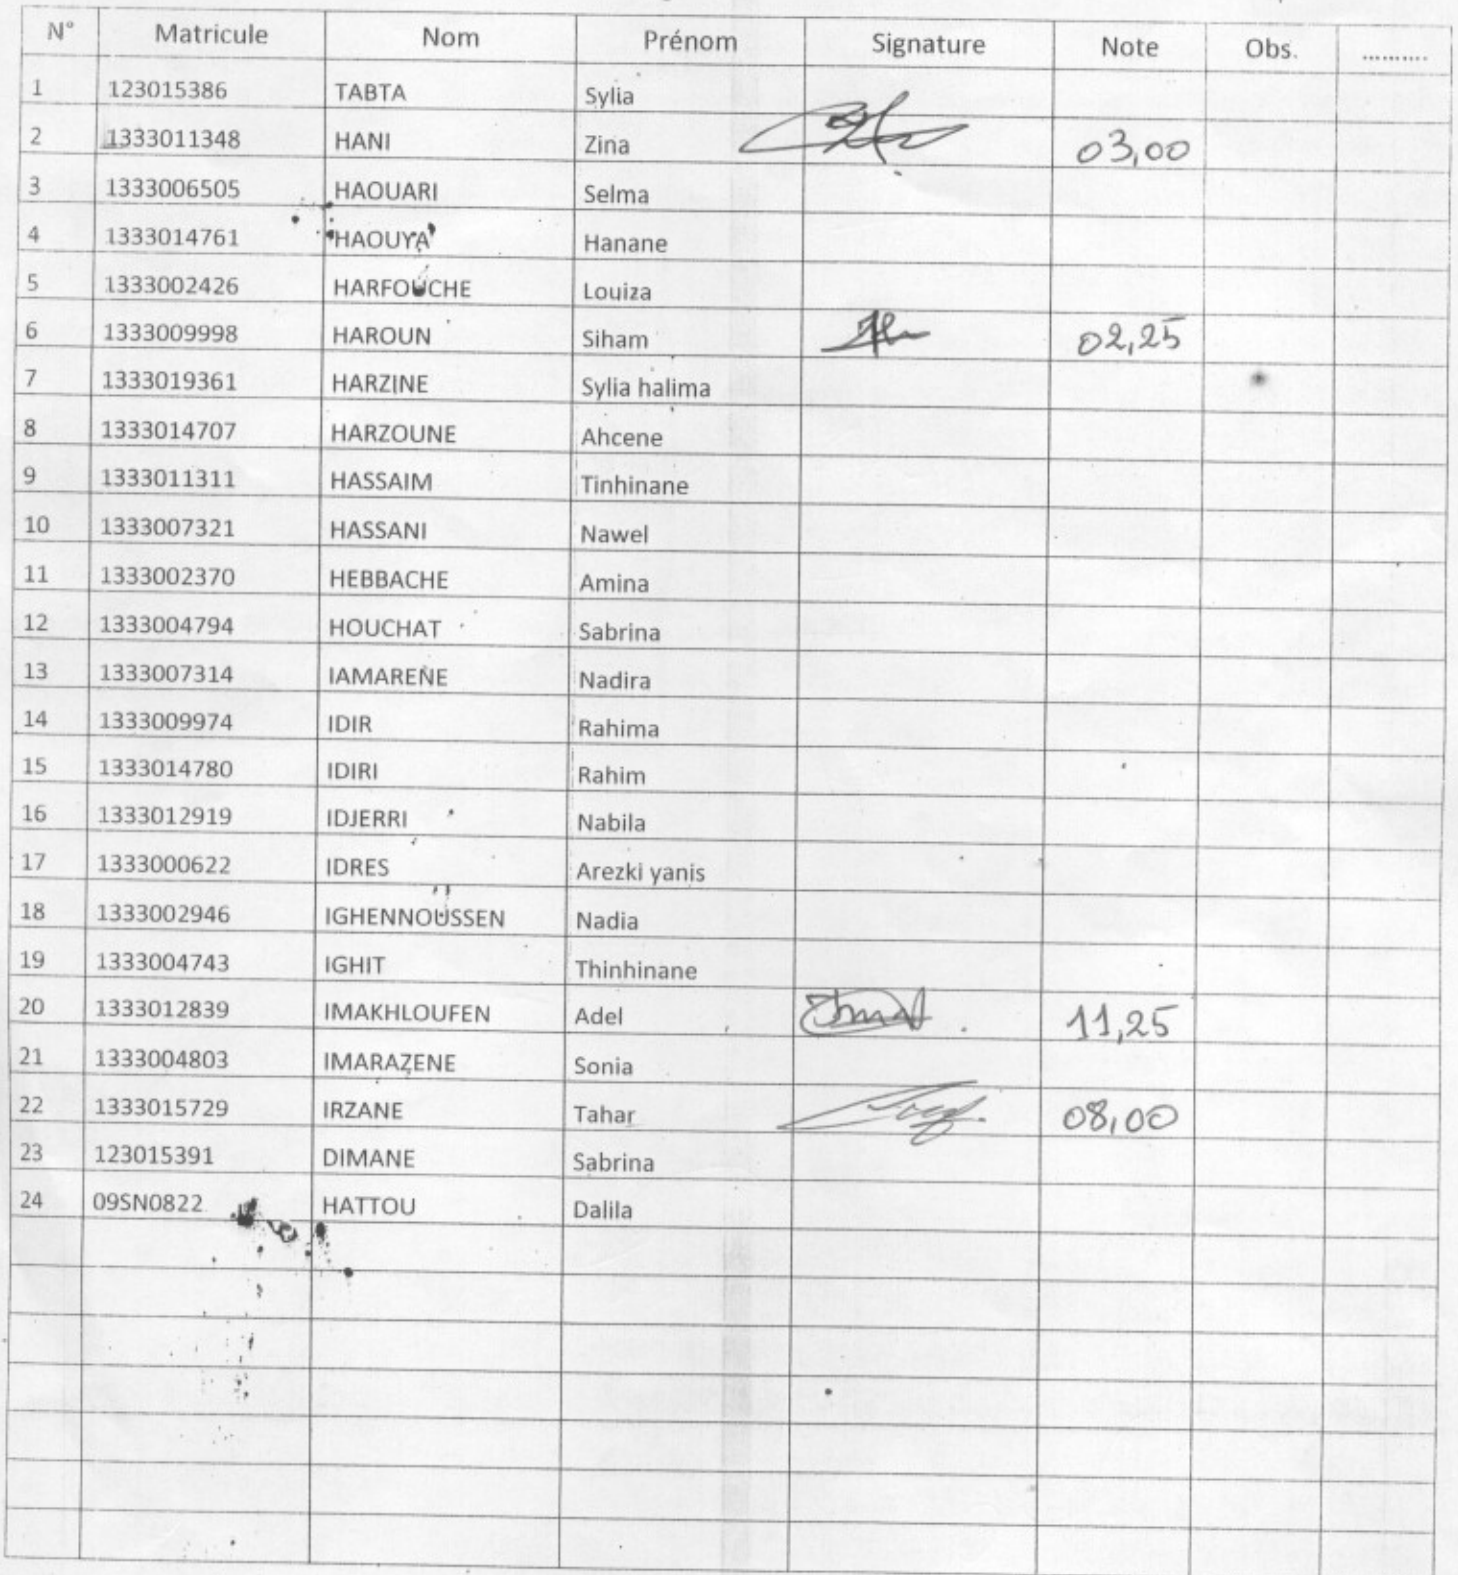 N° Matricule Nom Prénom Signature Note Obs. ..........
1 123015386 TABTA Sylia
2 1333011348 HANI Zina 03,00
3 1333006505 HAOUARI Selma
4 1333014761 HAOUYA Hanane
5 1333002426 HARFOUCHE Louiza
6 1333009998 HAROUN Siham 02,25
7 1333019361 HARZINE Sylia halima
8 1333014707 HARZOUNE Ahcene
9 1333011311 HASSAIM Tinhinane
10 1333007321 HASSANI Nawel
11 1333002370 HEBBACHE Amina
12 1333004794 HOUCHAT Sabrina
13 1333007314 IAMARENE Nadira
14 1333009974 IDIR Rahima
15 1333014780 IDIRI Rahim
16 1333012919 IDJERRI Nabila
17 1333000622 IDRES Arezki yanis
18 1333002946 IGHENNOUSSEN Nadia
19 1333004743 IGHIT Thinhinane
20 1333012839 IMAKHLOUFEN Adel 11,25
21 1333004803 IMARAZENE Sonia
22 1333015729 IRZANE Tahar 08,00
23 123015391 DIMANE Sabrina
24 09SN0822 HATTOU Dalila